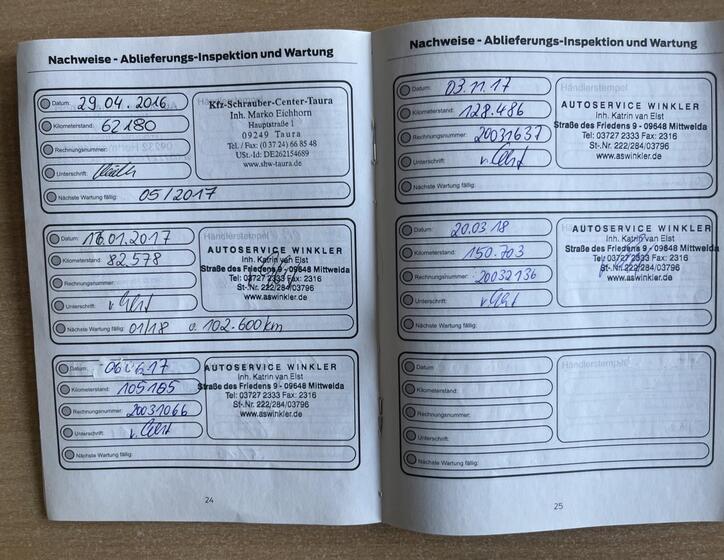 Nachweise - Ablieferungs-Inspektion und Wartung
Datum: 29.04.2016
Kilometerstand: 62180
Rechnungsnummer:
Unterschrift:
Nächste Wartung fällig: 05/2017
Kfz-Schrauber-Center-Taura
Inh. Marko Eichhorn
Hauptstraße 1
09249 Taura
Tel./Fax: (0 37 24) 66 85 48
USt.-Id: DE262154689
www.shw-taura.de
Datum: 16.01.2017
Kilometerstand: 82.578
Rechnungsnummer:
Unterschrift:
Nächste Wartung fällig: 01/18 o. 102.600km
Händlerstempel
AUTOSERVICE WINKLER
Inh. Katrin van Elst
Straße des Friedens 9 - 09648 Mittweida
Tel: 03727 2333 Fax: 2316
St-.Nr. 222/284/03796
www.aswinkler.de
Datum: 060617
Kilometerstand: 105185
Rechnungsnummer: 20031066
Unterschrift:
Nächste Wartung fällig:
AUTOSERVICE WINKLER
Inh. Katrin van Elst
Straße des Friedens 9 - 09648 Mittweida
Tel: 03727 2333 Fax: 2316
St-.Nr. 222/284/03796
www.aswinkler.de
24
Nachweise - Ablieferungs-Inspektion und Wartung
Datum: 03.11.17
Kilometerstand: 128.486
Rechnungsnummer: 20031637
Unterschrift:
Nächste Wartung fällig:
Händlerstempel
AUTOSERVICE WINKLER
Inh. Katrin van Elst
Straße des Friedens 9 - 09648 Mittweida
Tel: 03727 2333 Fax: 2316
St-.Nr. 222/284/03796
www.aswinkler.de
Datum: 20.03.18
Kilometerstand: 150.703
Rechnungsnummer: 20032136
Unterschrift:
Nächste Wartung fällig:
Händlerstempel
AUTOSERVICE WINKLER
Inh. Katrin van Elst
Straße des Friedens 9 - 09648 Mittweida
Tel: 03727 2333 Fax: 2316
St-.Nr. 222/284/03796
www.aswinkler.de
Datum
Kilometerstand:
Rechnungsnummer:
Unterschrift:
Nächste Wartung fällig:
Händlerstempel
25